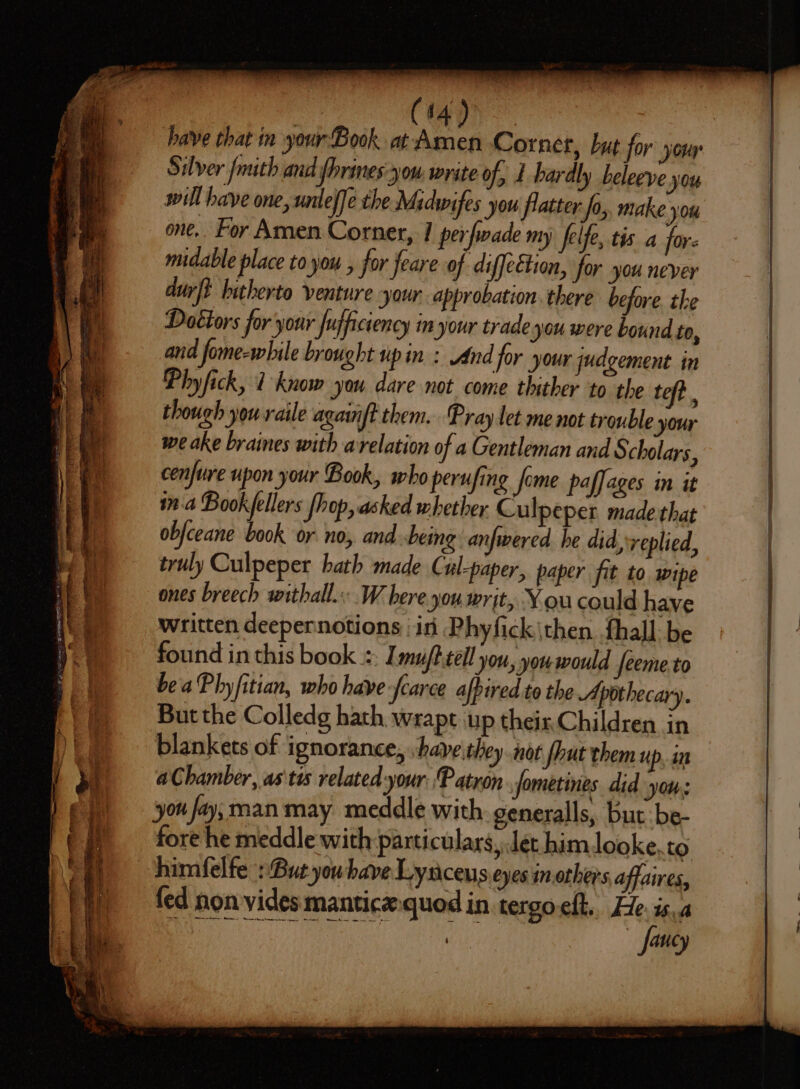 (14)
have that in your Book at Amen Corner, but for your
Silver ſmith and ſhrines you write of, I hardly beleeve you
will have one, unleſſe the Midwifes you flatter ſo, make you
one. For Amen Corner, I perſwade my ſelfe, tis a for-
midable place to you, for feare of diſſection, for you never
durſt hitherto venture your approbation there before the
Doctors for your ſufficiency in your trade you were bound to,
and ſome-while brought up in : And for your judgement in
Phyſick, I know you dare not come thither to the teſt,
though you raile againſt them. Pray let me not trouble your
weake braines with a relation of a Gentleman and Scholars,
cenſure upon your Book, who peruſing ſome paſſages in it
in a Bookſellers ſhop, asked whether Culpeper made that
obſceane book or no, and being anſwered he did, replied,
truly Culpeper hath made Cul-paper, paper fit to wipe
ones breech withall. Where you writ, You could have
written deeper notions in Phyſick then ſhall be
found in this book : I muſt tell you, you would ſeeme to
be a Phyſitian, who have ſcarce aſpired to the Apothecary.
But the Colledg hath wrapt up their Children in
blankets of ignorance, have they not ſhut them up in
a Chamber, as tis related your Patron ſometimes did you;
you ſay, man may meddle with generalls, but be-
fore he meddle with particulars, let him looke to
himſelfe : But you have Lynceus eyes in others affaires,
ſed non vides manticæ quod in tergo eſt. He is a
ſaucy